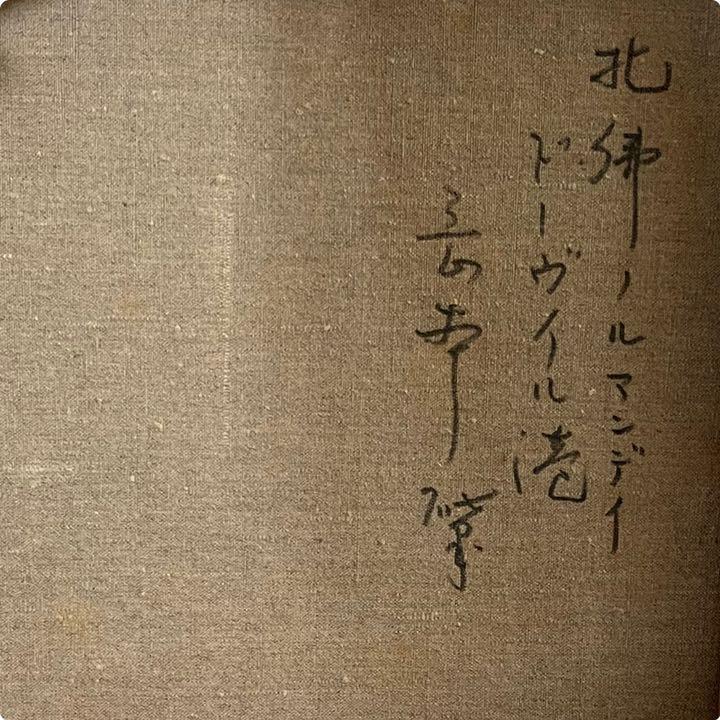 北佛ノルマンデイ
ドーヴイル港